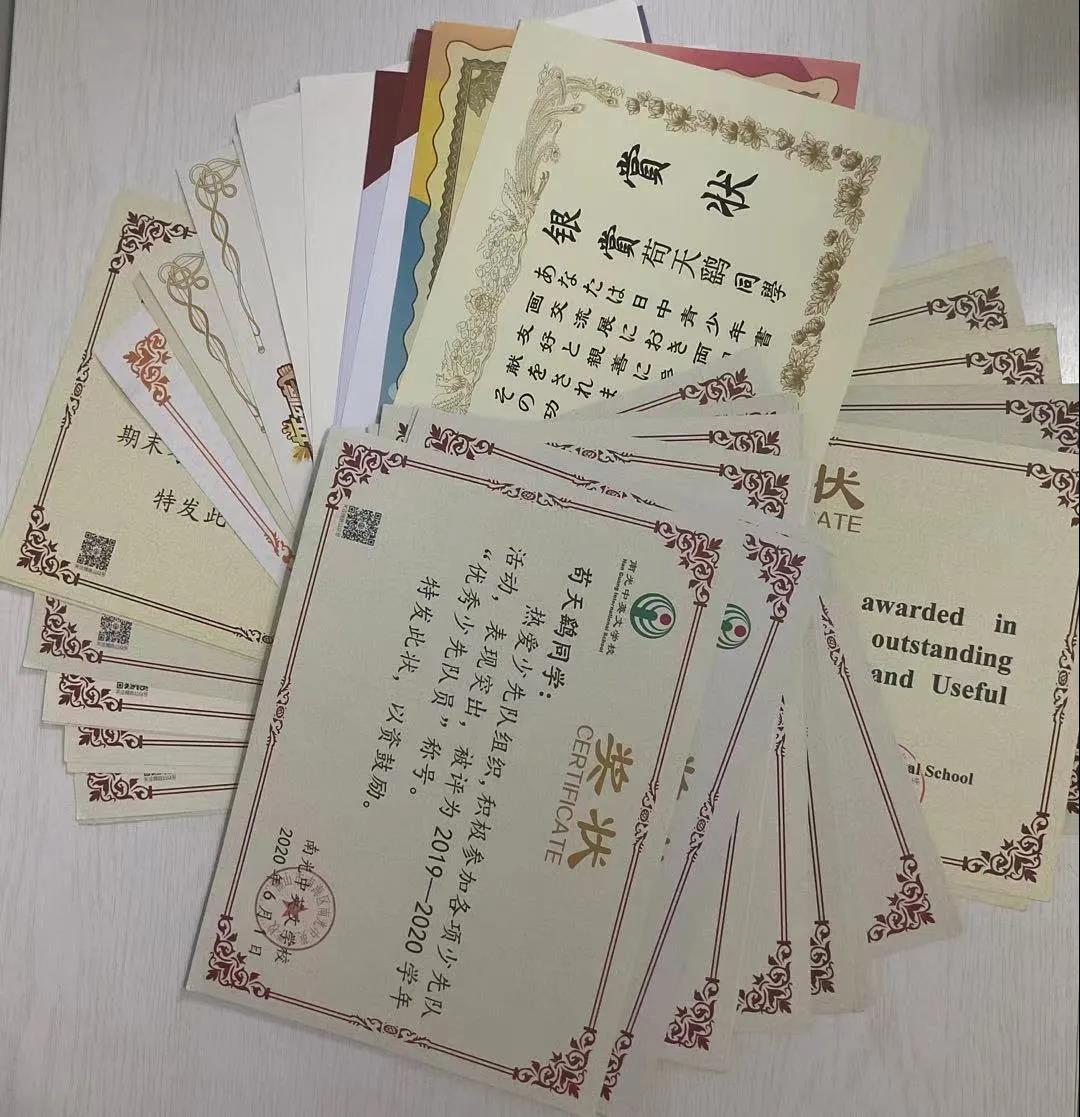 賞状
银賞
苟天鹞同學
あなたは日中青少年書
画交流展におき両
友好と親善に
献をされま
その功
期末
特发此
奖状
CERTIFICATE
南光中英文学校
Nan Guang International School
苟天鹞同学：
热爱少先队组织，积极参加各项少先队
活动，表现突出，被评为2019—2020学年
“优秀少先队员”称号。
特发此状，以资鼓励。
南光中英文学校
2020年6月1日
状
CATE
awarded in
outstanding
and Useful
al School